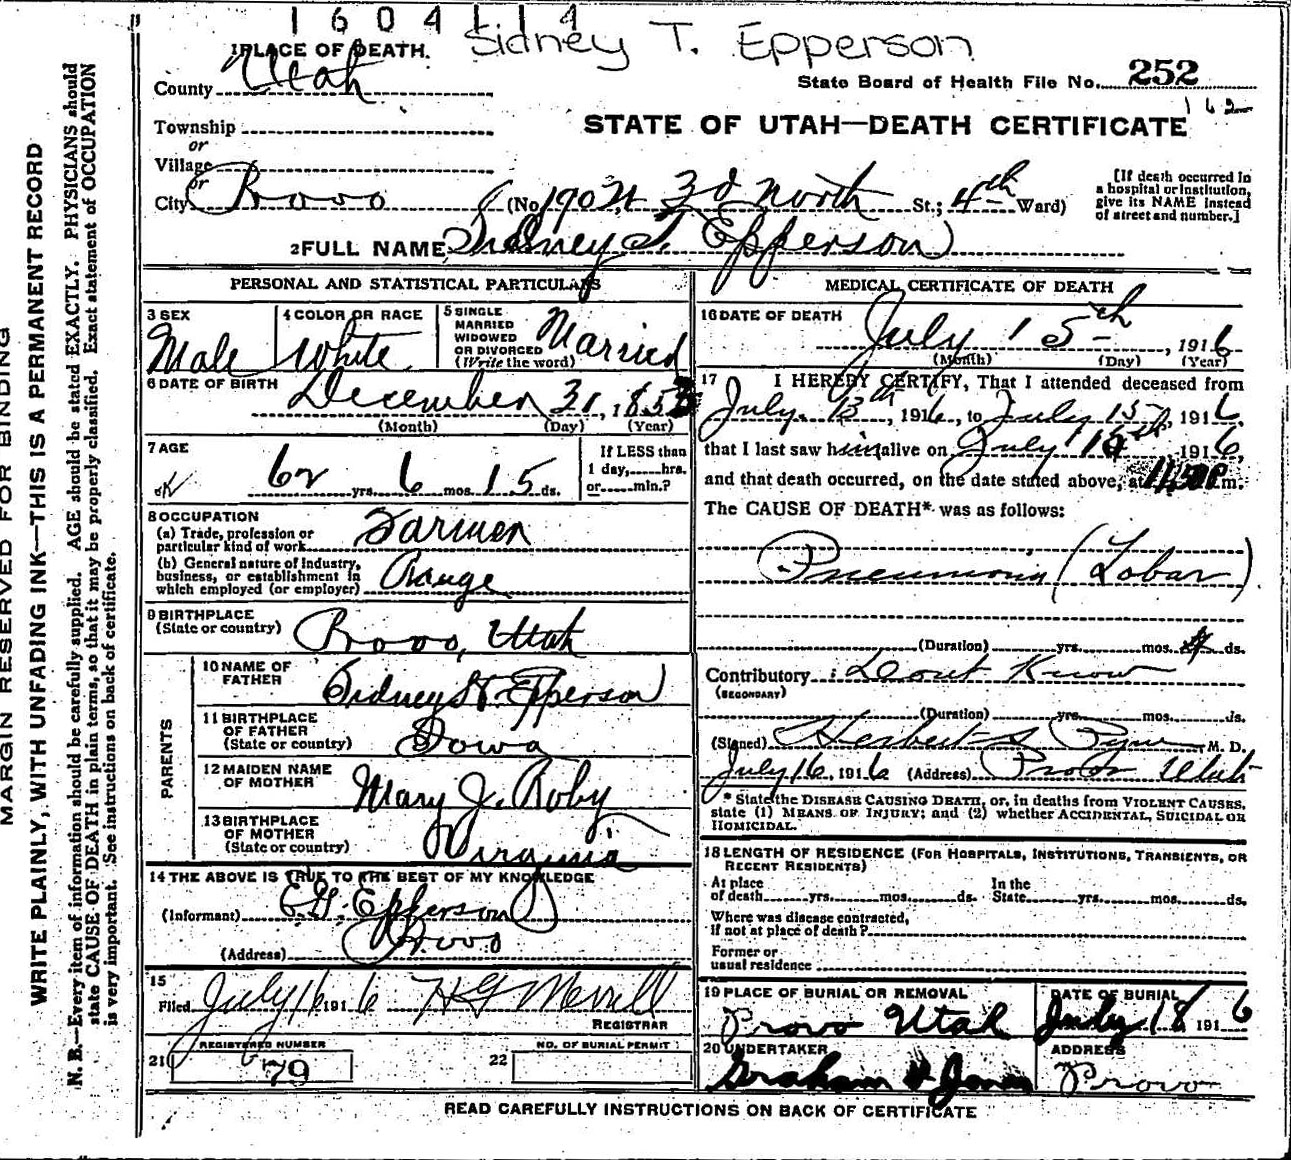 1 6 0 4 1 1 4
Sidney T. Epperson
1 PLACE OF DEATH.
County Utah
State Board of Health File No. 252
162
Township
or
Village
or
STATE OF UTAH—DEATH CERTIFICATE
City Provo (No. 190 W. 3d North St.; 4th Ward)
[If death occurred in
a hospital or institution,
give its NAME instead
of street and number.]
2 FULL NAME Sidney T. Epperson
PERSONAL AND STATISTICAL PARTICULARS
3 SEX
Male
4 COLOR OR RACE
White
5 SINGLE
MARRIED
WIDOWED
OR DIVORCED
(Write the word)
Married
6 DATE OF BIRTH
December 31, 1853
(Month) (Day) (Year)
7 AGE
OK
62 yrs. 6 mos. 15 ds.
If LESS than
1 day, hrs.
or min.?
8 OCCUPATION
(a) Trade, profession or
particular kind of work Farmer
(b) General nature of Industry,
business, or establishment in
which employed (or employer) Range
9 BIRTHPLACE
(State or country) Provo, Utah
PARENTS
10 NAME OF
FATHER Sidney H. Epperson
11 BIRTHPLACE
OF FATHER
(State or country) Iowa
12 MAIDEN NAME
OF MOTHER Mary J. Roby
13 BIRTHPLACE
OF MOTHER
(State or country) Virginia
14 THE ABOVE IS TRUE TO THE BEST OF MY KNOWLEDGE
(Informant) E.G. Epperson
(Address) Provo
15
Filed July 16 1916 H G Merrill
REGISTRAR
REGISTERED NUMBER
21 79
NO. OF BURIAL PERMIT
22
MEDICAL CERTIFICATE OF DEATH
16 DATE OF DEATH
July 15th, 1916
(Month) (Day) (Year)
17 I HEREBY CERTIFY, That I attended deceased from
July 13th, 1916, to July 15, 1916,
that I last saw him alive on July 15th 1916,
and that death occurred, on the date stated above, at 11:50 P.m.
The CAUSE OF DEATH* was as follows:
Pneumonia (Lobar)
(Duration) yrs. mos. 4 ds.
Contributory : Dont Know
(SECONDARY)
(Duration) yrs. mos. ds.
(Signed) Herbert S. Pyne M. D.
July 16, 1916 (Address) Provo Utah
* State the DISEASE CAUSING DEATH, or, in deaths from VIOLENT CAUSES,
state (1) MEANS OF INJURY; and (2) whether ACCIDENTAL, SUICIDAL OR
HOMICIDAL.
18 LENGTH OF RESIDENCE (FOR HOSPITALS, INSTITUTIONS, TRANSIENTS, OR
RECENT RESIDENTS)
At place
of death yrs. mos. ds.
In the
State yrs. mos. ds.
Where was disease contracted,
if not at place of death?
Former or
usual residence
19 PLACE OF BURIAL OR REMOVAL
Provo Utah
DATE OF BURIAL
July 18 1916
20 UNDERTAKER
Graham & Jones
ADDRESS
Provo
READ CAREFULLY INSTRUCTIONS ON BACK OF CERTIFICATE
MARGIN RESERVED FOR BINDING
WRITE PLAINLY, WITH UNFADING INK—THIS IS A PERMANENT RECORD
N. B.—Every item of information should be carefully supplied. AGE should be stated EXACTLY. PHYSICIANS should
state CAUSE OF DEATH in plain terms, so that it may be properly classified. Exact statement of OCCUPATION
is very important. See instructions on back of certificate.